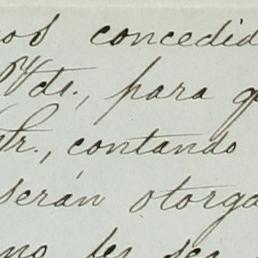 nos concedid
Vds., para q
Sr., contando
serán otorga
no les sea